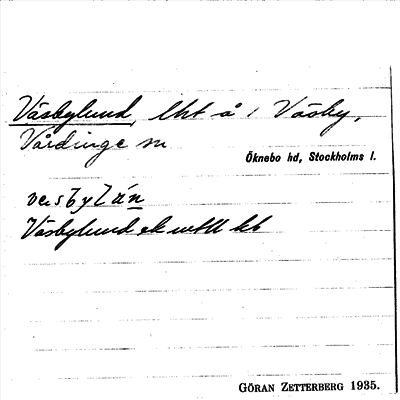 Väsbylund, lht å 1 Väsby,
Vårdinge sn
Öknebo hd, Stockholms l.
Väsbylund ek wtU kb
GÖRAN ZETTERBERG 1935.